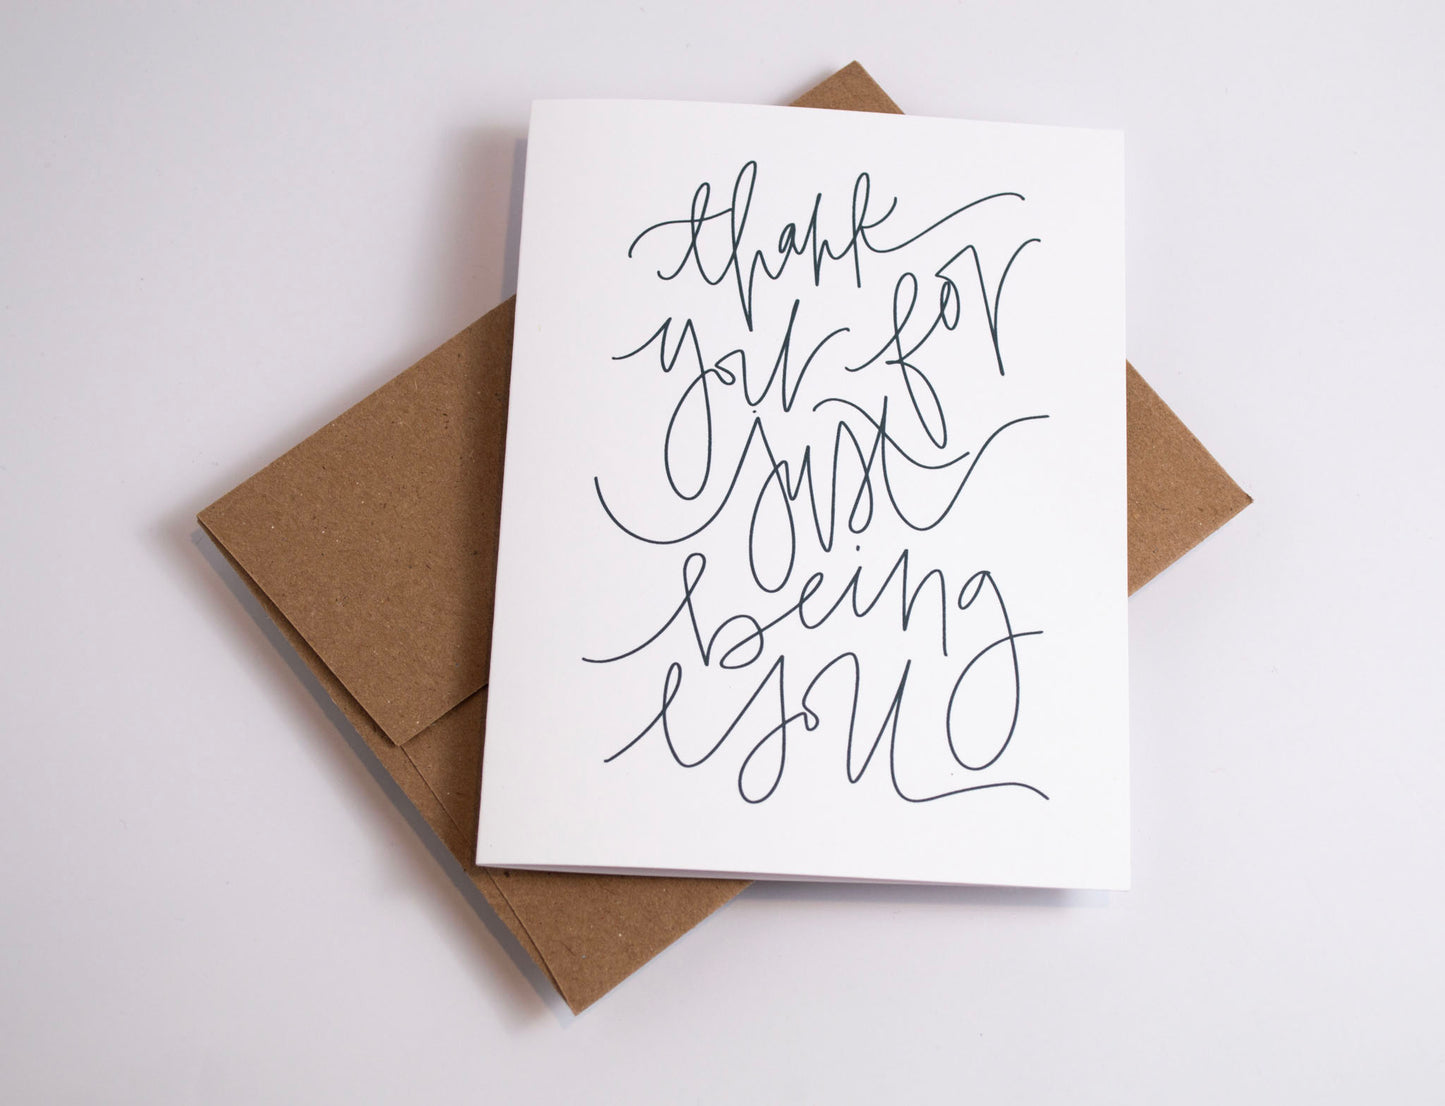 thank
you for
just
being
you